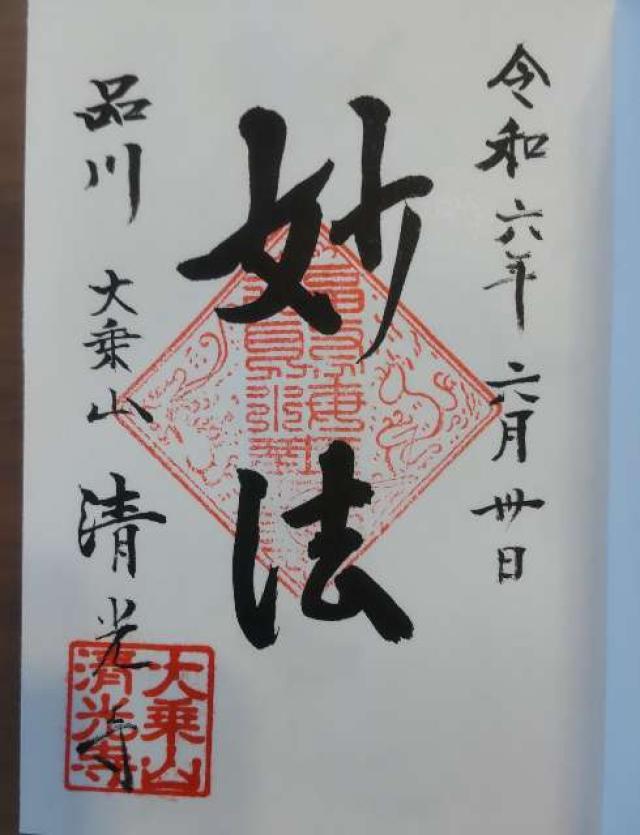 令和六年六月卅日
妙法
品川 大乗山 清光寺
大乗山
清光寺